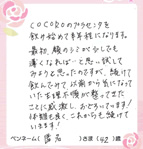 COCOROのプラセンタを
飲み始めて半年程になります。
最初、顔のシミが少しでも
薄くなれば…と思って試して
みようと思ったのですが、続けて
飲んでみて、以前から気になって
いた生理不順が整ってきた
ことに感激し、おどろいています!
体調も良く、これからも続けて
いきます!
ペンネーム( 匿名 )さま(42)歳